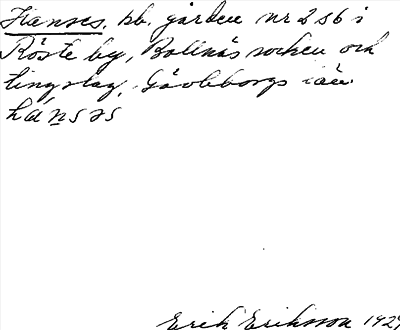 Hanses, pb. gården nr 2 o 6 i
Röste by, Bollnäs socken och
tingslag, Gävleborgs län.
hánsəs
Erik Eriksson 192